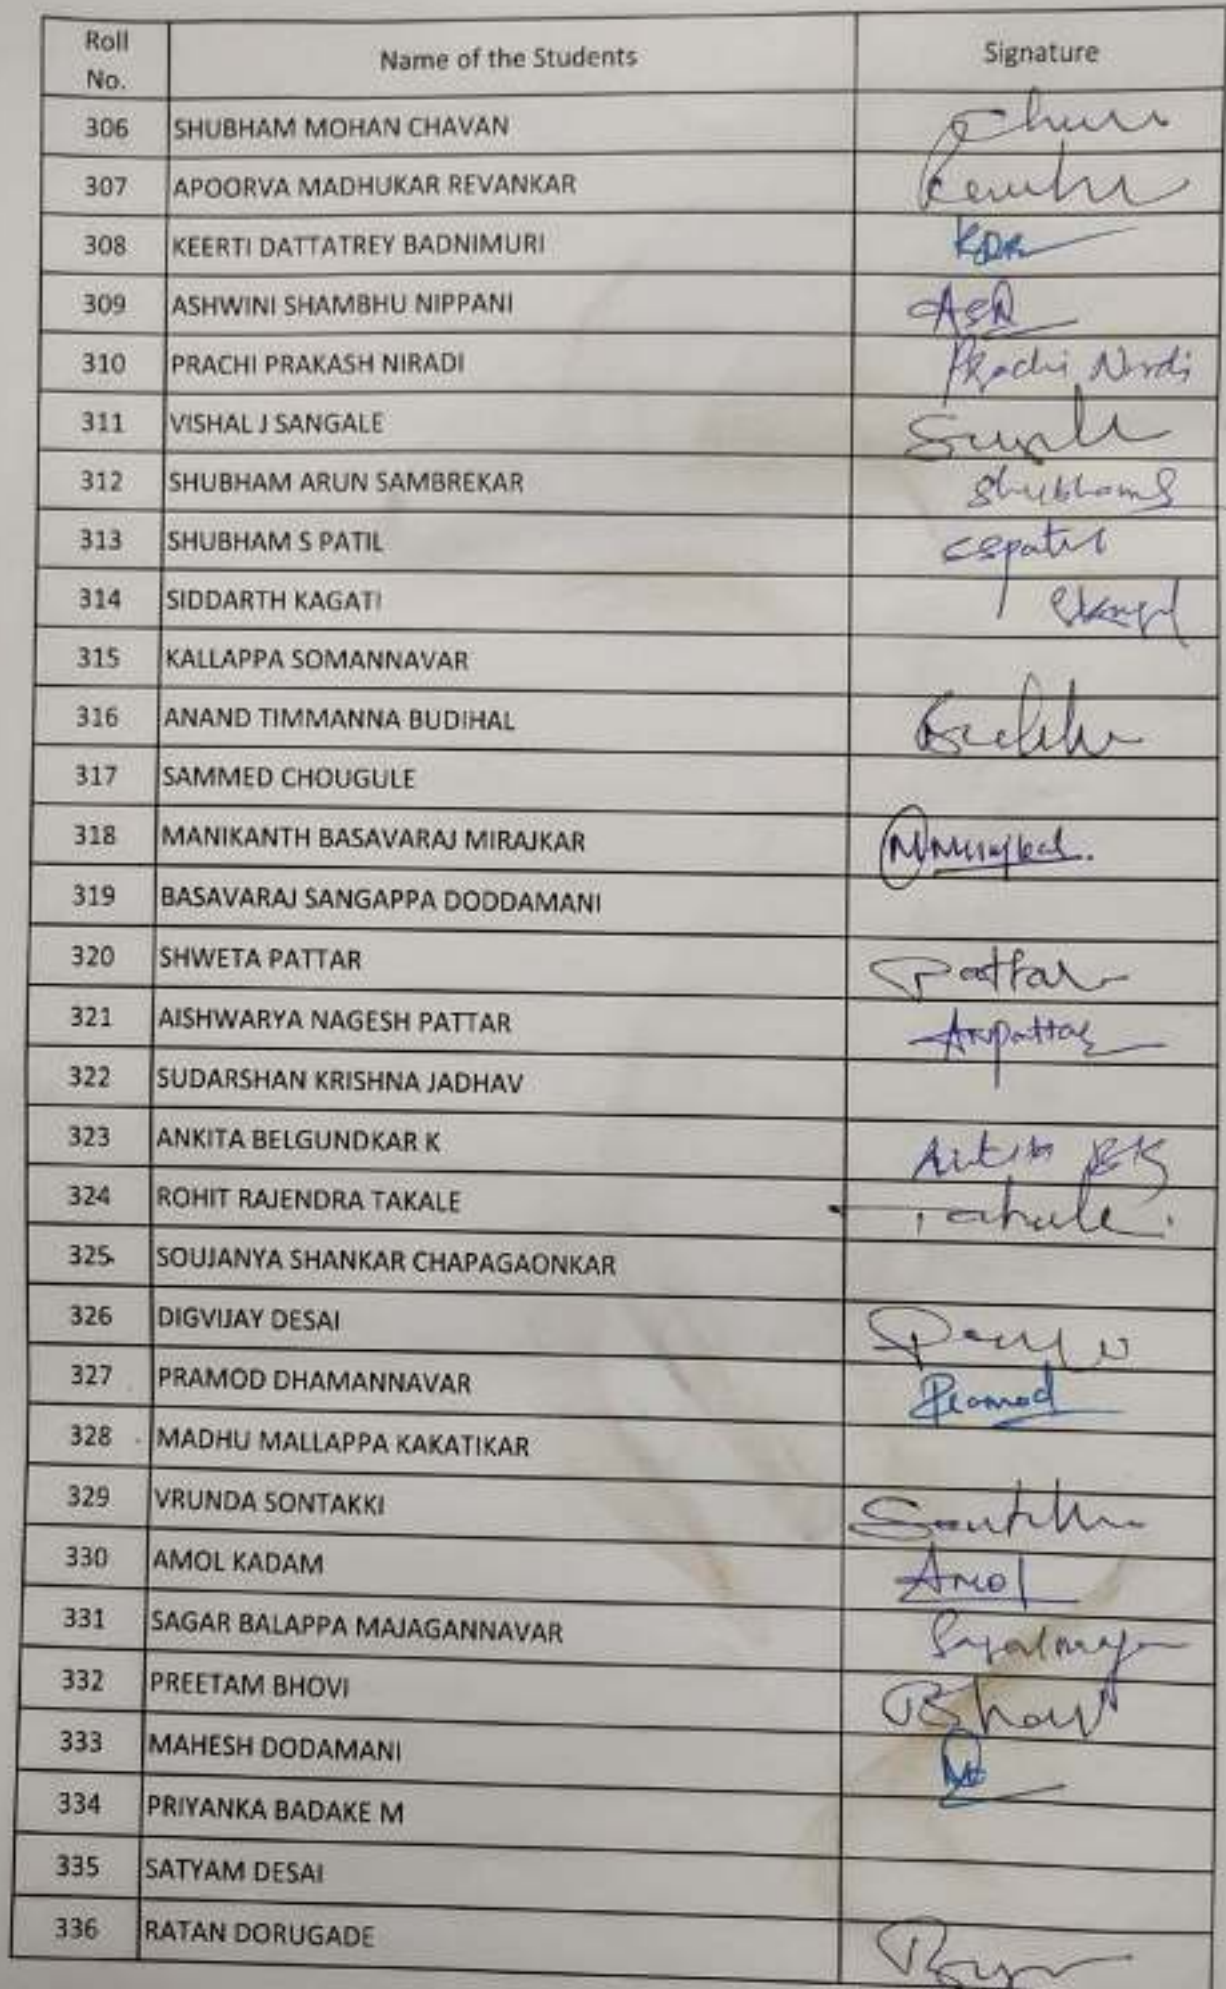 Roll No. Name of the Students Signature
306 SHUBHAM MOHAN CHAVAN
307 APOORVA MADHUKAR REVANKAR
308 KEERTI DATTATREY BADNIMURI
309 ASHWINI SHAMBHU NIPPANI ASN
310 PRACHI PRAKASH NIRADI Prachi Nirdi
311 VISHAL J SANGALE
312 SHUBHAM ARUN SAMBREKAR ShubhamS
313 SHUBHAM S PATIL sspatil
314 SIDDARTH KAGATI
315 KALLAPPA SOMANNAVAR
316 ANAND TIMMANNA BUDIHAL
317 SAMMED CHOUGULE
318 MANIKANTH BASAVARAJ MIRAJKAR
319 BASAVARAJ SANGAPPA DODDAMANI
320 SHWETA PATTAR Pattar
321 AISHWARYA NAGESH PATTAR ANPattar
322 SUDARSHAN KRISHNA JADHAV
323 ANKITA BELGUNDKAR K
324 ROHIT RAJENDRA TAKALE Takale
325 SOUJANYA SHANKAR CHAPAGAONKAR
326 DIGVIJAY DESAI
327 PRAMOD DHAMANNAVAR Pramod
328 MADHU MALLAPPA KAKATIKAR
329 VRUNDA SONTAKKI
330 AMOL KADAM Amol
331 SAGAR BALAPPA MAJAGANNAVAR
332 PREETAM BHOVI Bhovi
333 MAHESH DODAMANI
334 PRIYANKA BADAKE M
335 SATYAM DESAI
336 RATAN DORUGADE